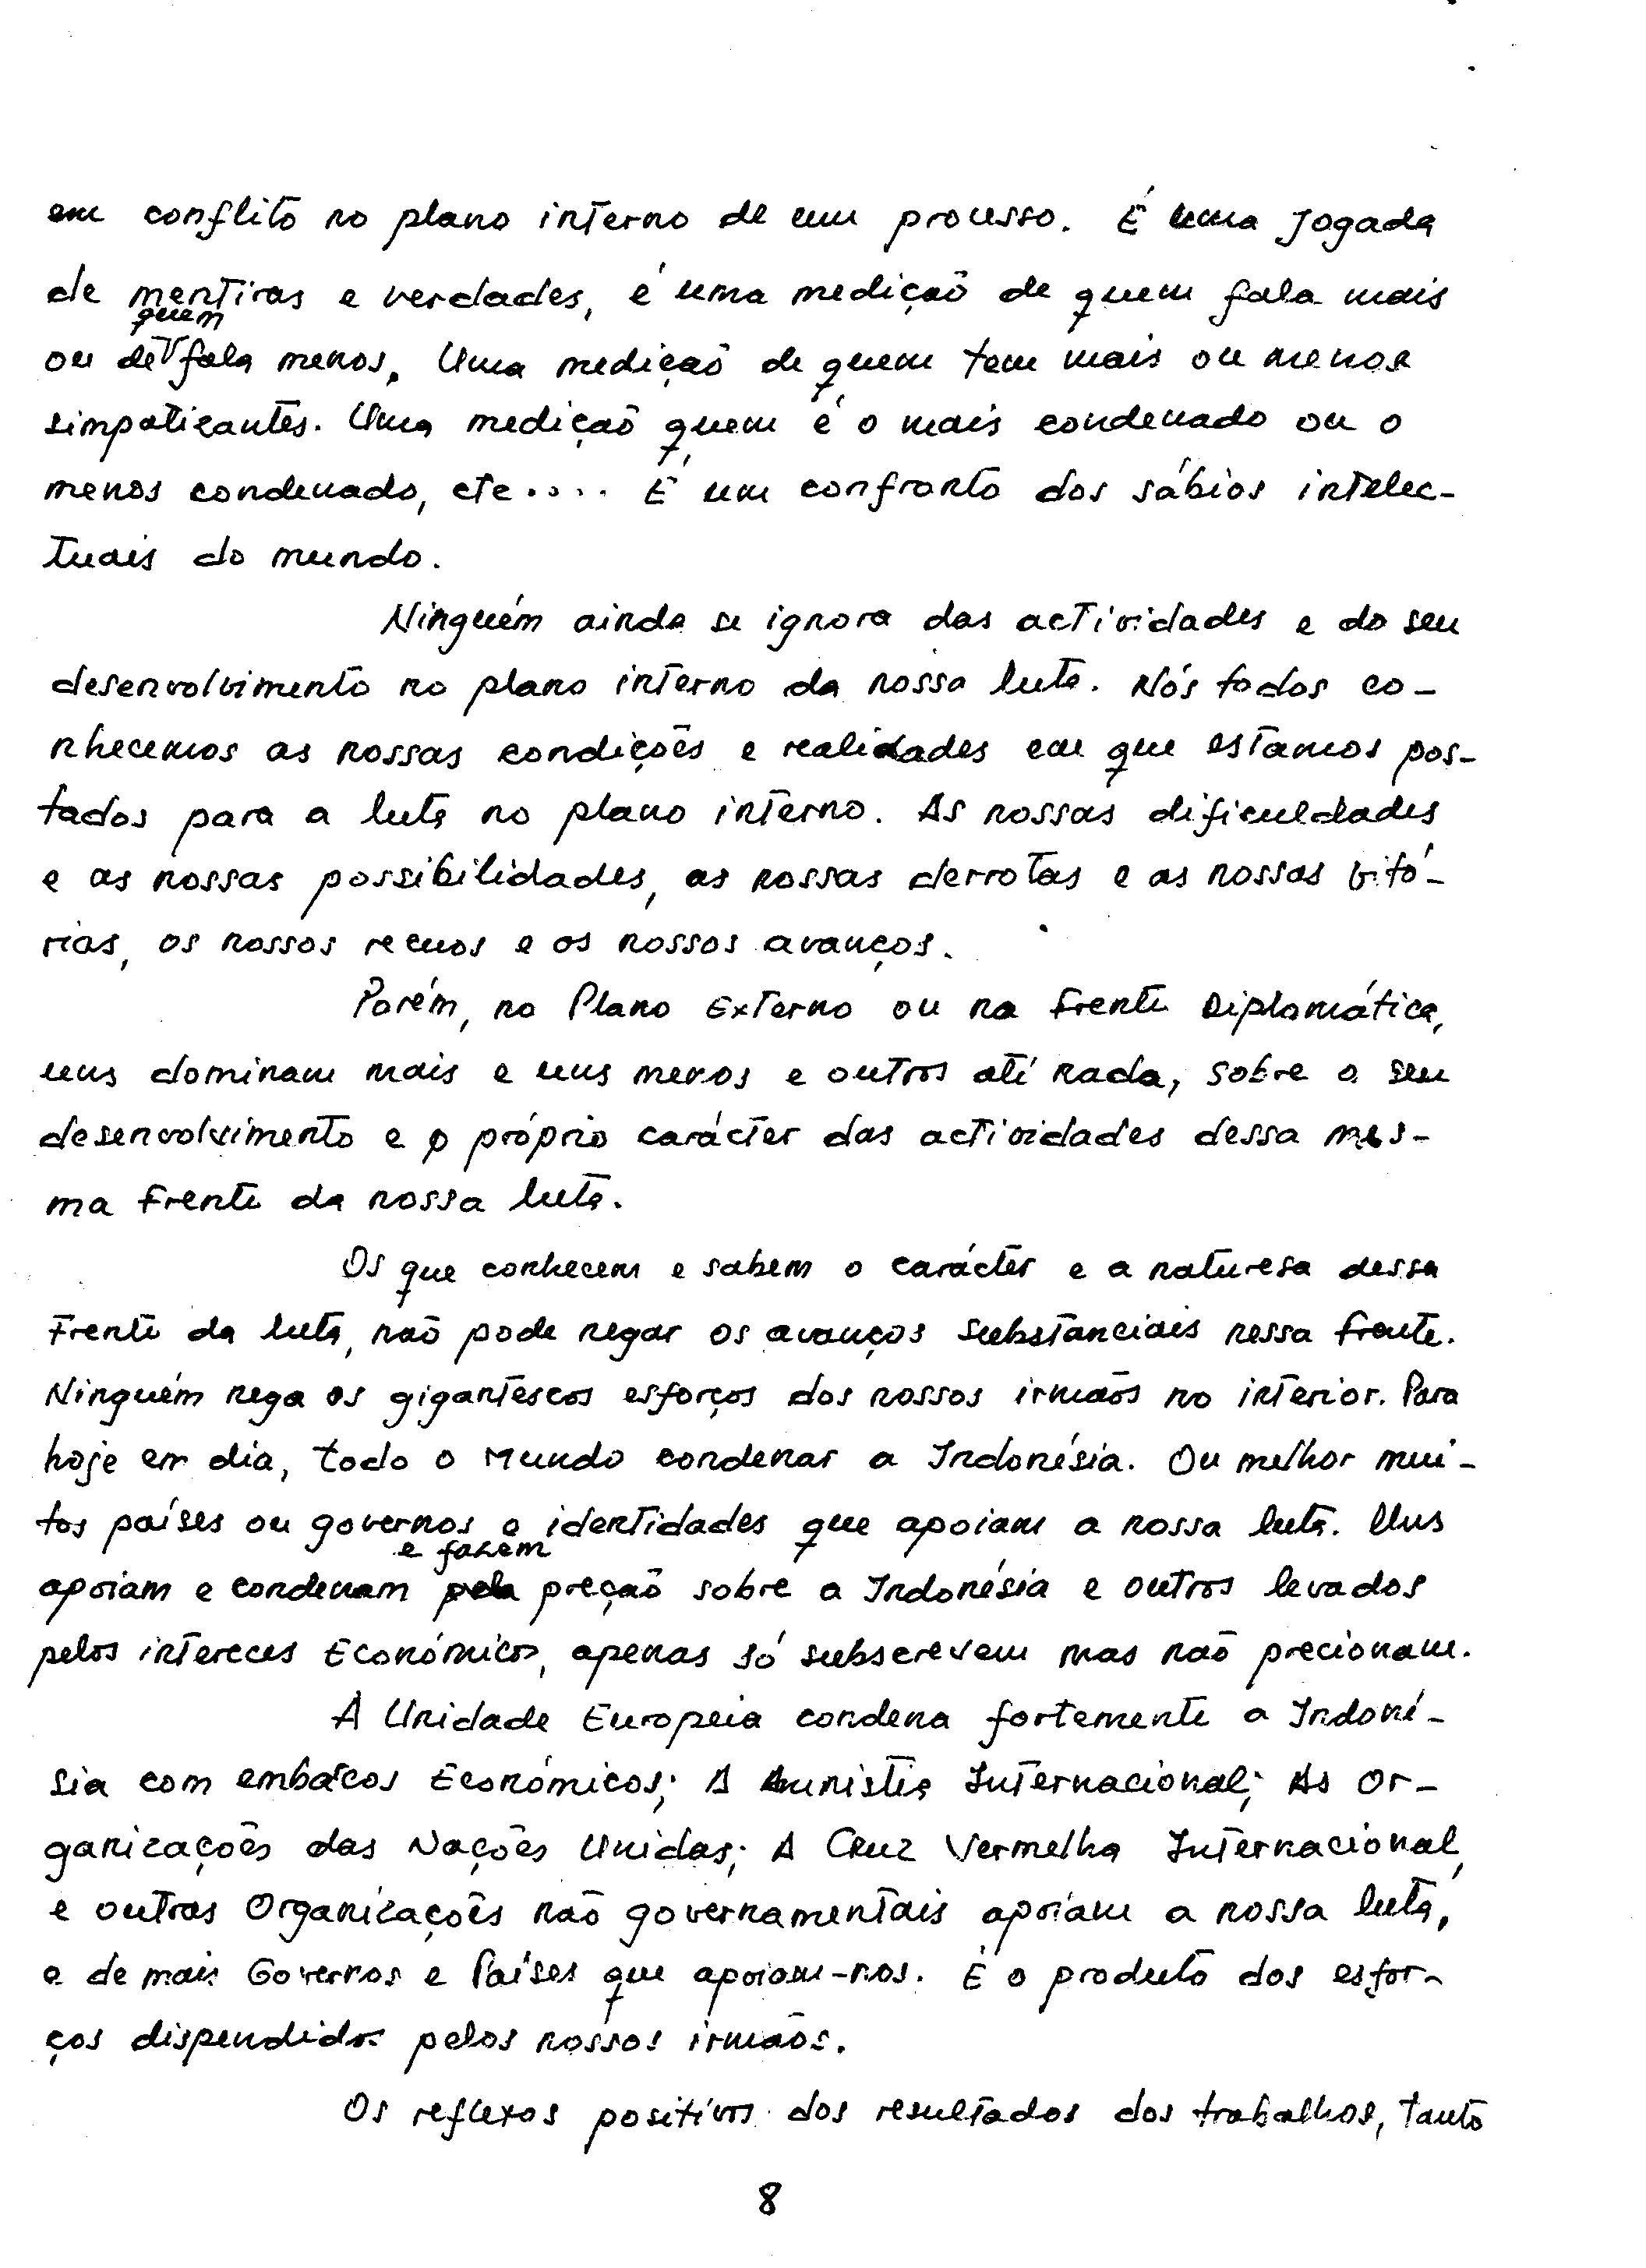 em conflito no plano interno de um processo. É uma Jogada
de mentiras e verdades, é uma medição de quem fala mais
ou de quem fala menos, Uma medição de quem tem mais ou menos
simpatizantes. Uma medição quem é o mais condenado ou o
menos condenado, etc.... É um confronto dos sábios intelec-
tuais do mundo.
Ninguém ainda se ignora das actividades e do seu
desenvolvimento no plano interno da nossa luta. Nós todos co-
nhecemos as nossas condições e realidades em que estamos pos-
tados para a luta no plano interno. As nossas dificuldades
e as nossas possibilidades, as nossas derrotas e as nossas vitó-
rias, os nossos recuos e os nossos avanços.
Porém, no Plano Externo ou na Frente Diplomática,
uns dominam mais e uns menos e outros até nada, sobre o seu
desenvolvimento e o próprio carácter das actividades dessa mes-
ma Frente da nossa luta.
Os que conhecem e sabem o carácter e a naturesa dessa
Frente da luta, não pode negar os avanços substanciais nessa frente.
Ninguém nega os gigantescos esforços dos nossos irmãos no interior. Para
hoje em dia, todo o Mundo condenar a Indonésia. Ou melhor mui-
tos países ou governos e identidades que apoiam a nossa luta. Uns
apoiam e condenam e fazem preção sobre a Indonésia e outros levados
pelos intereces Económicos, apenas só subscrevem mas não precionam.
A Unidade Europeia condena fortemente a Indoné-
sia com embarcos Económicos; A Amnistia Internacional; As Or-
ganizações das Nações Unidas; A Cruz Vermelha Internacional,
e outras Organizações não governamentais apoiam a nossa luta,
e de mais Governos e Países que apoiam-nos. É o produto dos esfor-
ços dispendidos pelos nossos irmãos.
Os reflexos positivos dos resultados dos trabalhos, tanto
8